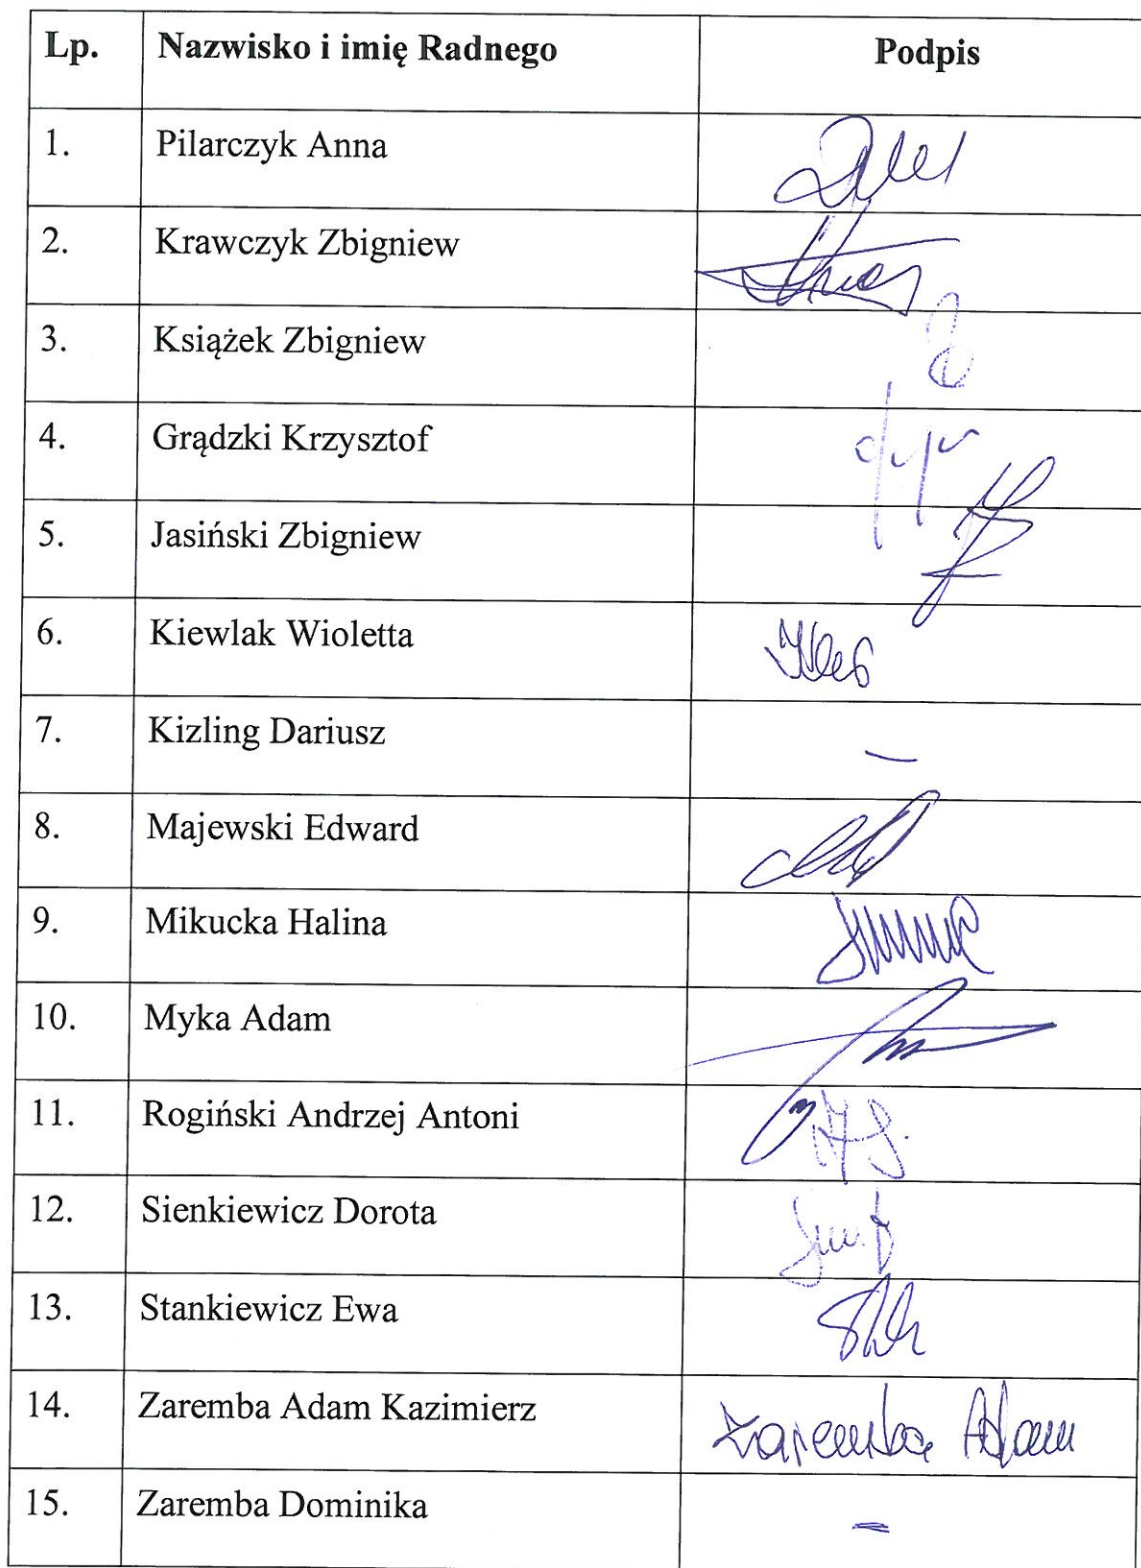 Lp. Nazwisko i imię Radnego Podpis
1. Pilarczyk Anna
2. Krawczyk Zbigniew
3. Książek Zbigniew
4. Grądzki Krzysztof
5. Jasiński Zbigniew
6. Kiewlak Wioletta
7. Kizling Dariusz –
8. Majewski Edward
9. Mikucka Halina
10. Myka Adam
11. Rogiński Andrzej Antoni
12. Sienkiewicz Dorota
13. Stankiewicz Ewa
14. Zaremba Adam Kazimierz Zaremba Adam
15. Zaremba Dominika –